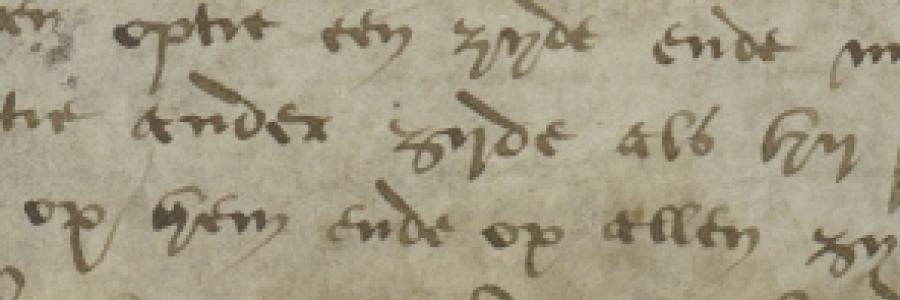 optie een zyde ende
tie ander zyde als hy
op hem ende op allen zy